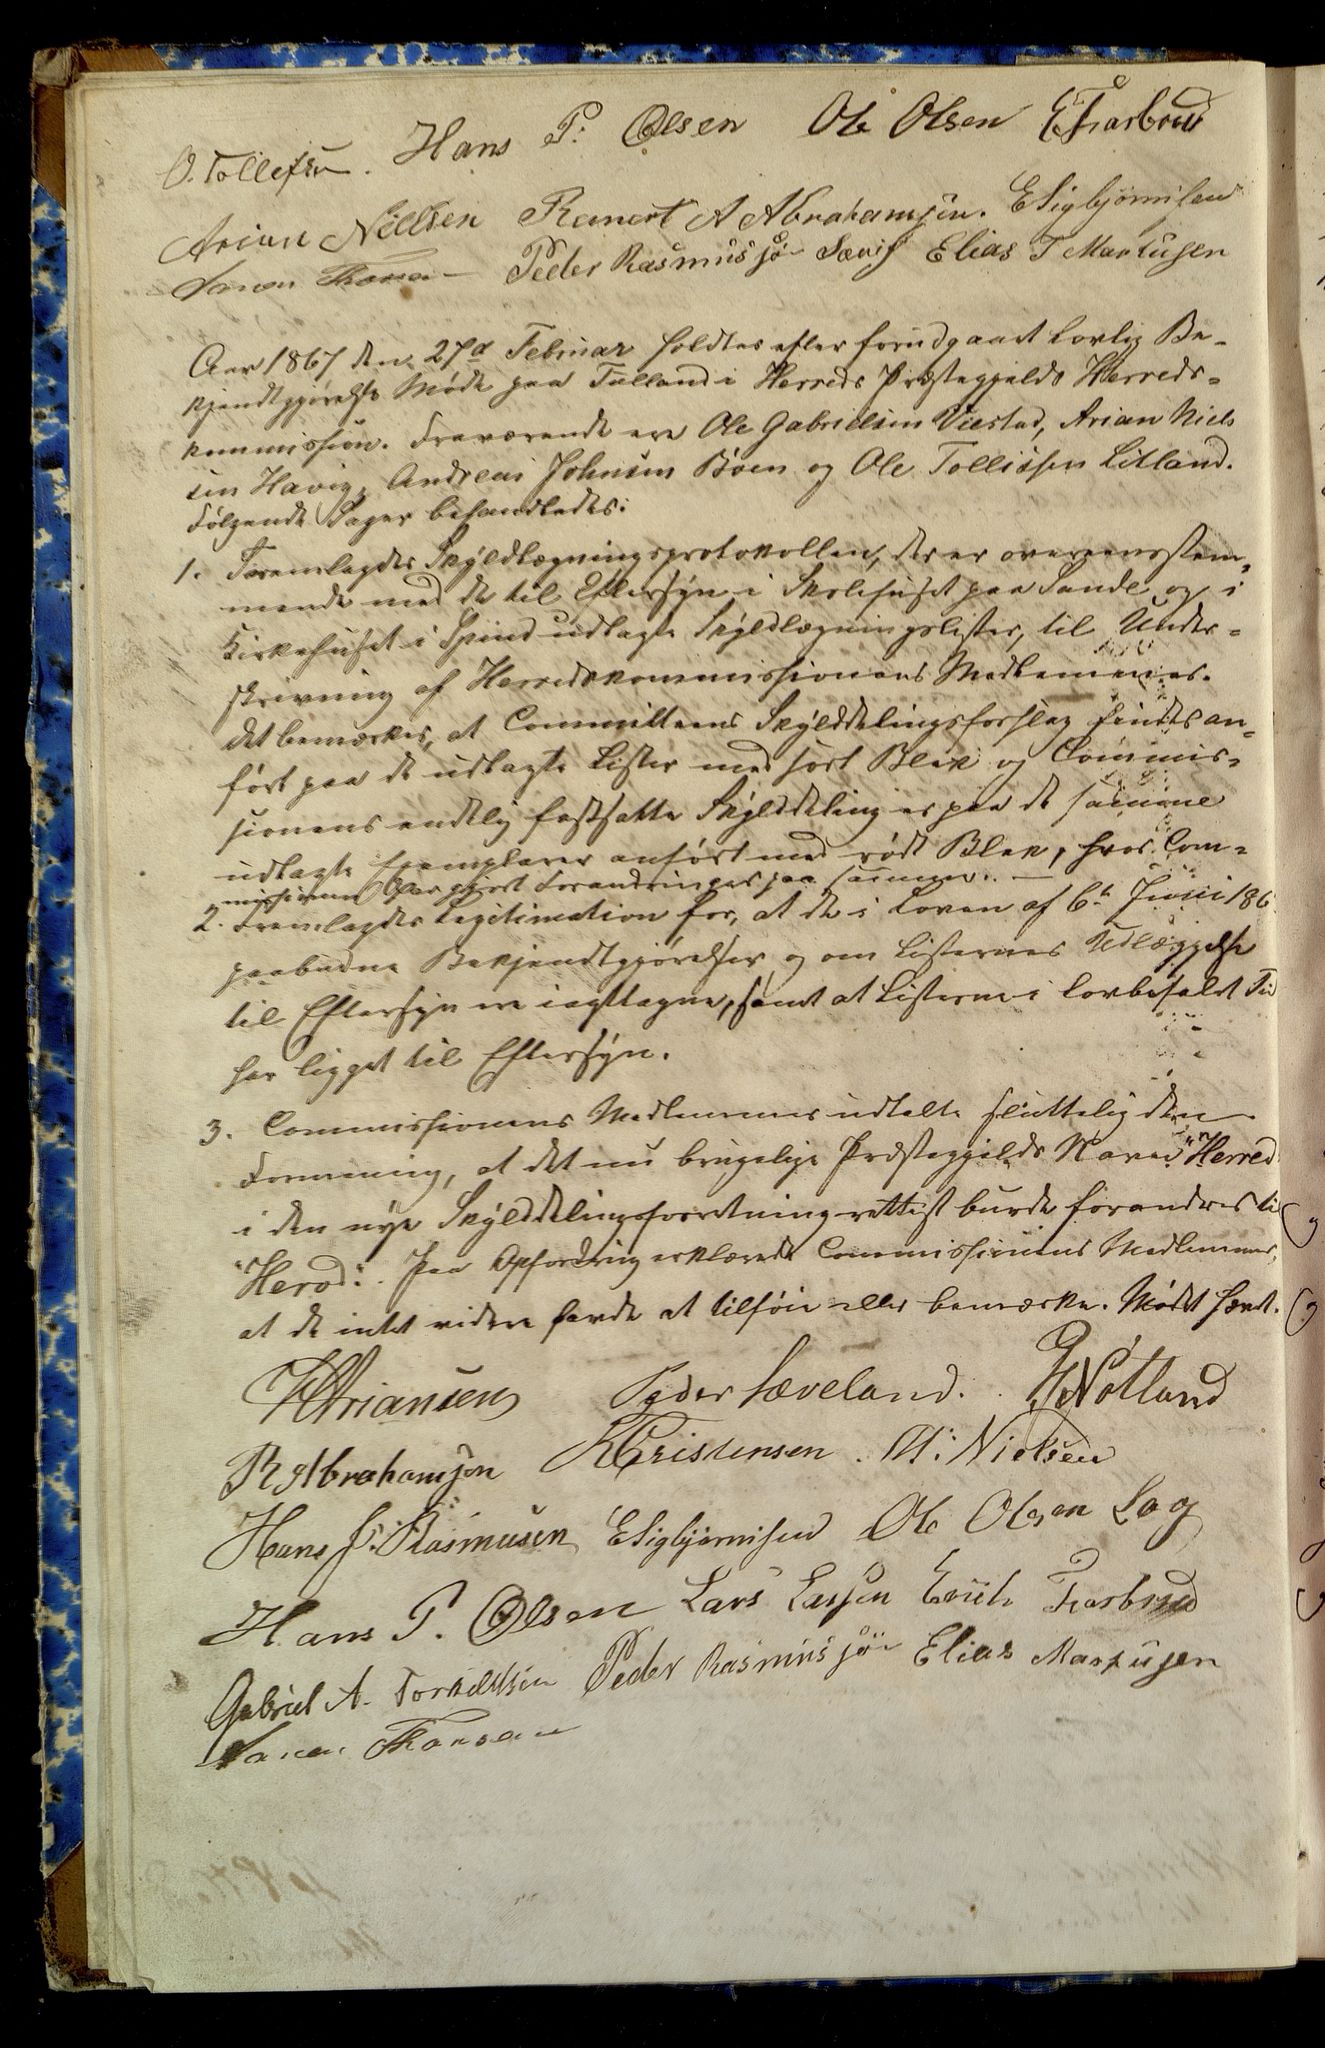 O. Tollefsen. Hans P. Olsen Ole Olsen E Tarbrud
Arian Nielsen Reinert A Abrahamsen. E Sigbjørnsen
Peder Rasmussøn Sævig Elias T Markusen
Aar 1867 den 27d Februar holdtes efter forudgaaet lovlig Be-
kjendtgjørelse Møde paa Tulland i Herreds Præstegjælds Herreds-
kommission. Fraværende ere Ole Gabrielsen Viestad, Arian Niel-
sen Havig, Andreas Johnsen Bøen og Ole Tollissen Litland.
Følgende Sager behandledes:
1. Fremlagdes Skyldlægningsprotokollen, der er overeensstem-
mende med de til Eftersyn i Skolehuset paa Sande og i
Kirkehuset i Spind udlagte Skyldlægningslister, til Under-
skrivning af Herredskommissionens Medlemmer.
Det bemærkes, at Committeens Skylddelingsforslag findes an-
ført paa de udlagte Lister med sort Blæk og Commis-
sionens endelig fastsatte Skylddeling er paa de samme
udlagte Exemplarer anført med rødt Blæk, hvor Com-
missionen har gjort Forandringer paa samme. —
2. Fremlagdes Legitimation for, at de i Loven af 6te Juni 186
paabudne Bekjendtgjørelser og om Listernes Udlæggelse
til Eftersyn ere iagttagne, samt at Listerne i lovbefalet Tid
har ligget til Eftersyn.
3. Commissionens Medlemmer udtalte sluttelig den
Formening, at det nu brugelige Præstegjelds Navn "Herred"
i den nye Skylddelingsforretning rettest burde forandres til
"Herod". Paa Opfordring erklærede Commissionens Medlemmer,
at de intet videre havde at tilføie eller bemærke. Mødet hævet.
H Ariansen Peder Sæveland. Nøtland
R Abrahamsen K Cristensen. A. Nielsen
Hans J. Rasmusen E Sigbjørnsen Ole Olsen Log
Hans P. Olsen Lars Larsen Erich Tarbrud
Gabriel A. Torkildsen Peder Rasmussøn Elias Markusen